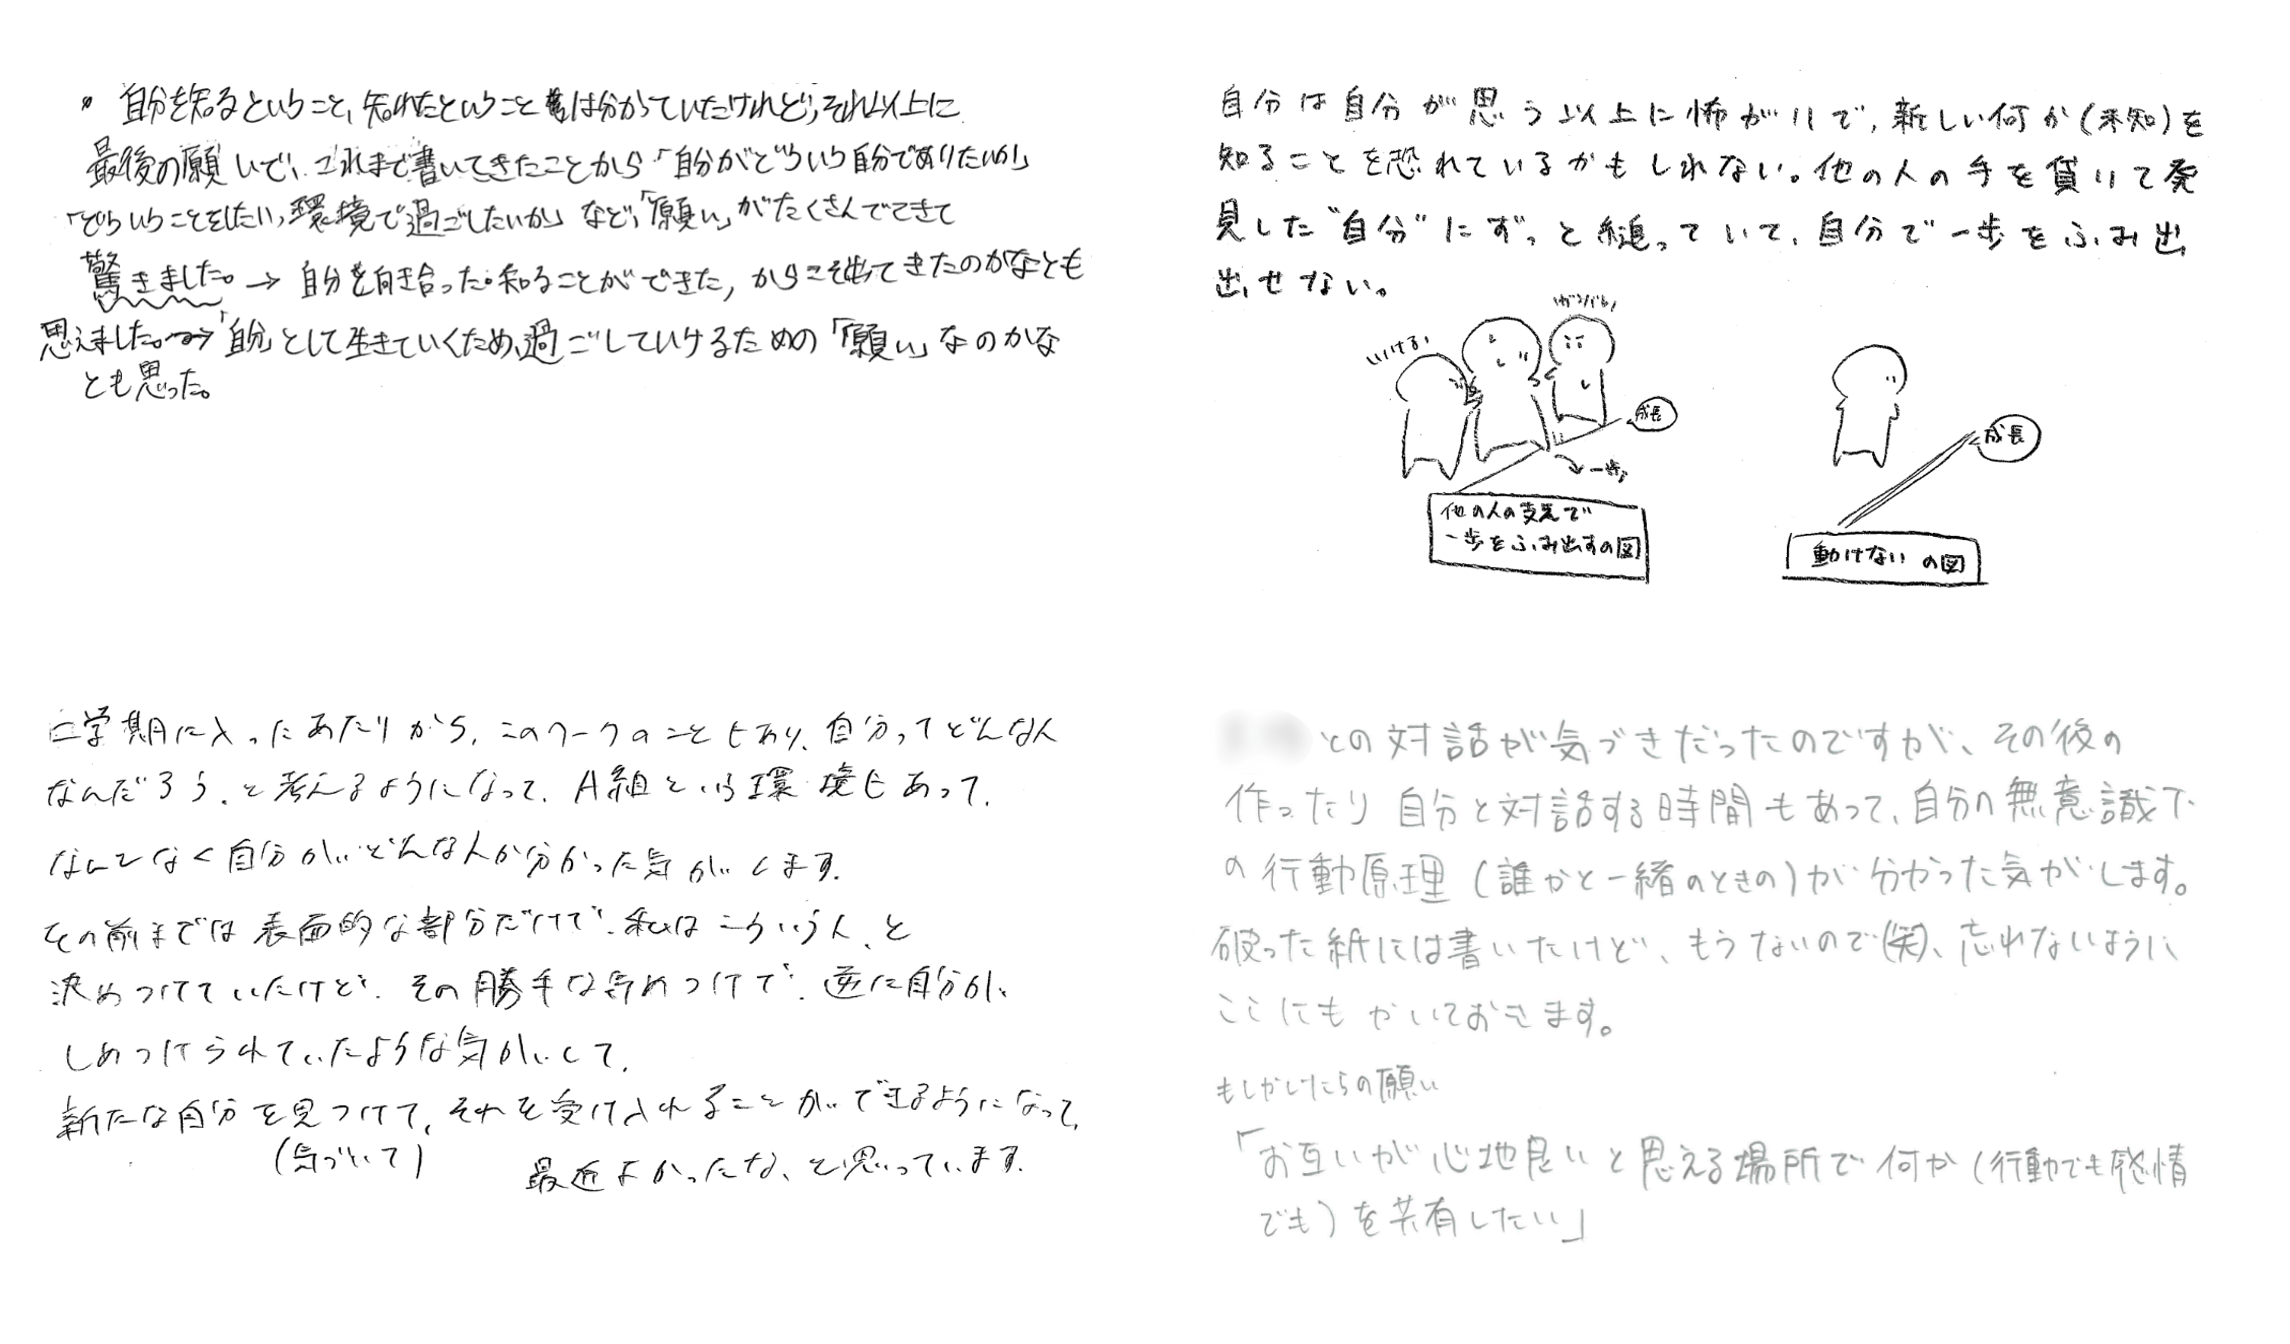 自分を知るということ、知れたということは分かっていたけれど、それ以上に
最後の願いで、これまで書いてきたことから「自分がどういう自分でありたいか」
「どういうことをしたい、環境で過ごしたいか」など、「願い」がたくさんでてきて
驚きました。→ 自分を向き合った・知ることができた、からこそ出てきたのかなとも
思えました。→「自分」として生きていくため、過ごしていけるための「願い」なのかな
とも思った。
自分は自分が思う以上に怖がりで、新しい何か(未知)を
知ることを恐れているかもしれない。他の人の手を借りて発
見した"自分"にずっと縋っていて、自分で一歩をふみ出
出せない。
ガンバレ!
いける
成長
一歩
他の人の支えで
一歩をふみ出すの図
成長
動けないの図
二学期に入ったあたりから、このワークのこともあり、自分ってどんな人
なんだろう、と考えるようになって、A組という環境もあって、
なんとなく自分がどんな人か分かった気がします。
その前までは表面的な部分だけで、私はこういう人、と
決めつけていたけど、その勝手な決めつけで、逆に自分が
しめつけられていたような気がして、
新たな自分を見つけて、それを受け入れることができるようになって、
(気づいて)
最近よかったな、と思っています。
との対話が気づきだったのですが、その後の
作ったり自分と対話する時間もあって、自分の無意識下
の行動原理(誰かと一緒のときの)が分かった気がします。
破った紙には書いたけど、もうないので(笑)、忘れないように
ここにもかいておきます。
もしかしたらの願い
「お互いが心地良いと思える場所で何か(行動でも感情
でも)を共有したい」